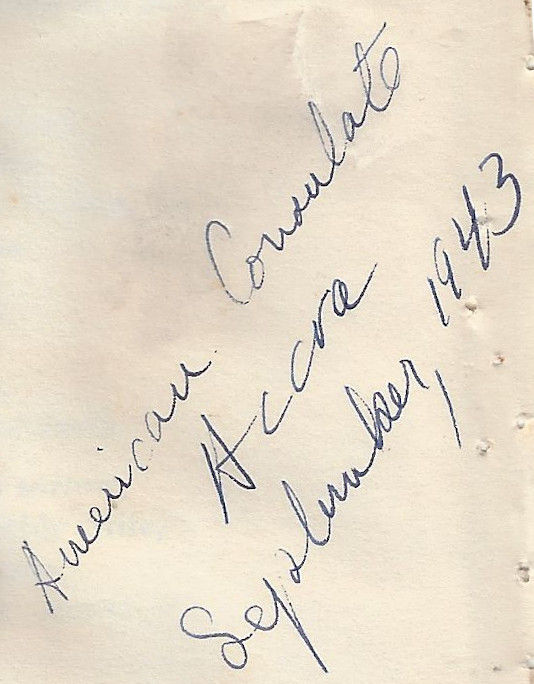 American Consulate
Accra
September, 1943